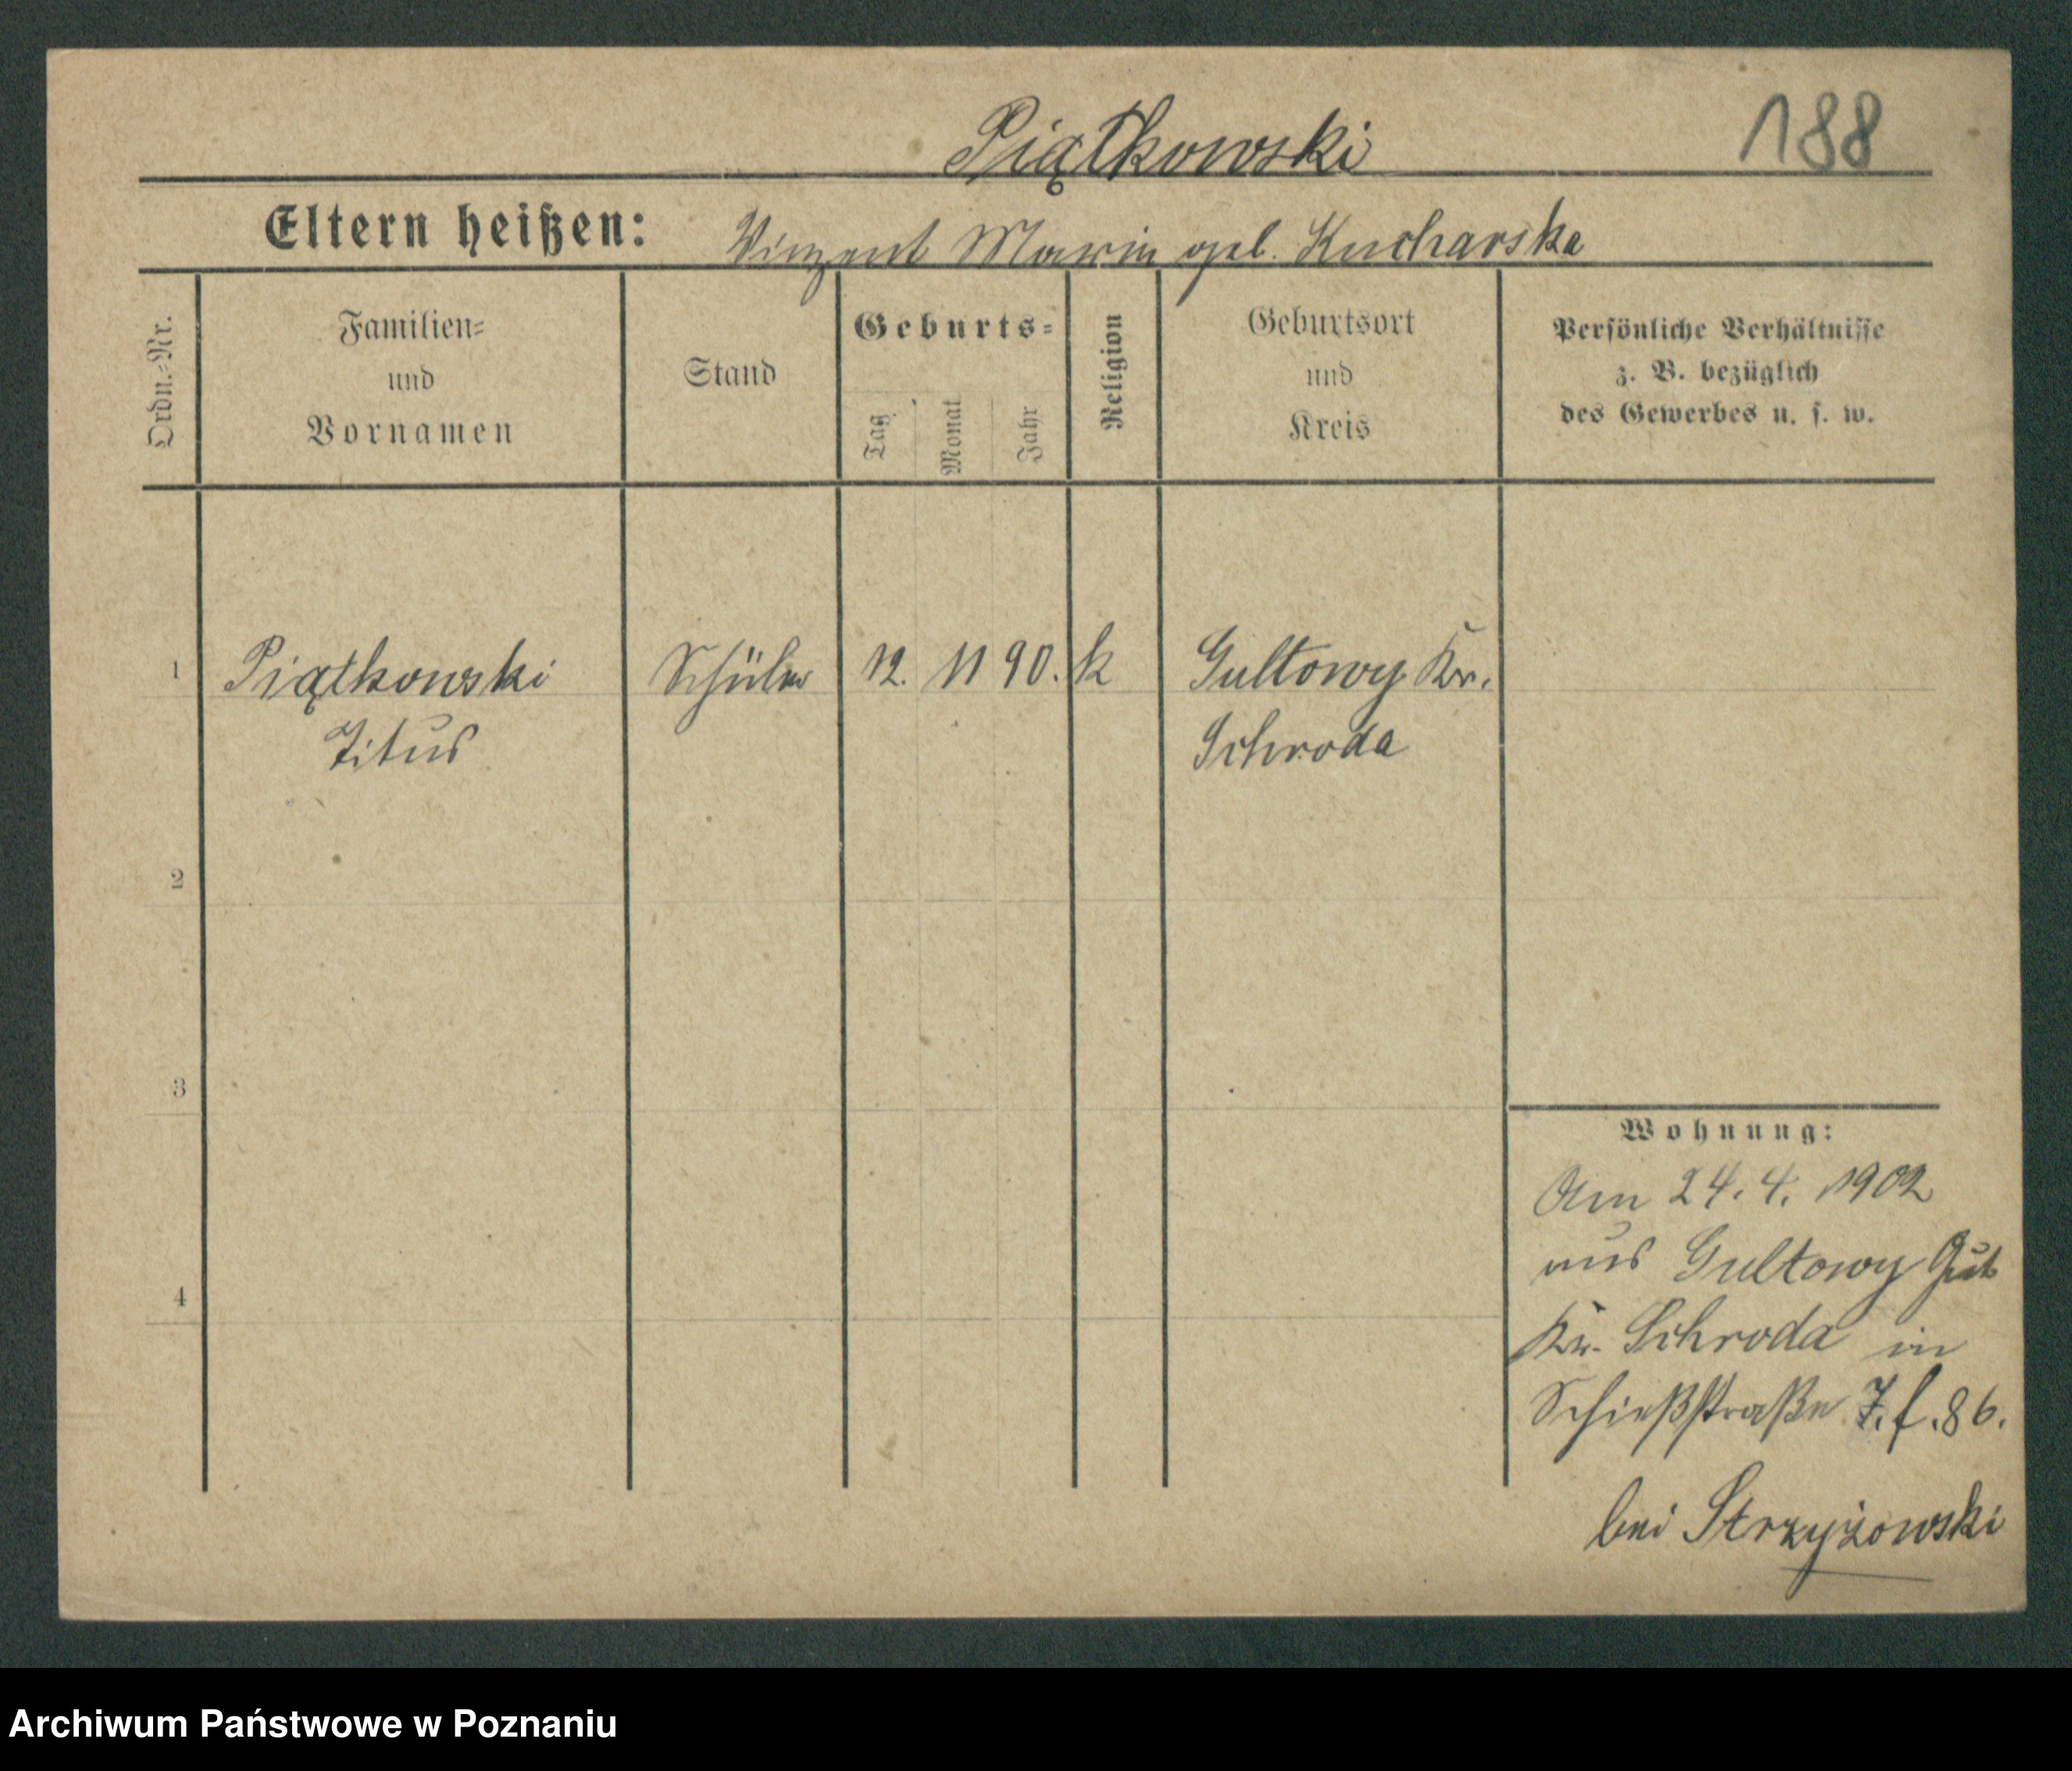 Piątkowski
188
Eltern heißen: Vinzent Marie geb. Kucharska
Ordn.-Nr.
Familien-
und
Vornamen
Stand
Geburts-
Tag
Monat
Jahr
Religion
Geburtsort
und
Kreis
Persönliche Verhältnisse
z. B. bezüglich
des Gewerbes u. s. w.
1 Piątkowski Schüler 12. 11 90. k Gultowy Kr.
Titus Schroda
2
3
4
Wohnung:
Am 24. 4. 1902
aus Gultowy Gut
Kr. Schroda in
Schießstraße 7. f. 86.
bei Strzyżowski
Archiwum Państwowe w Poznaniu